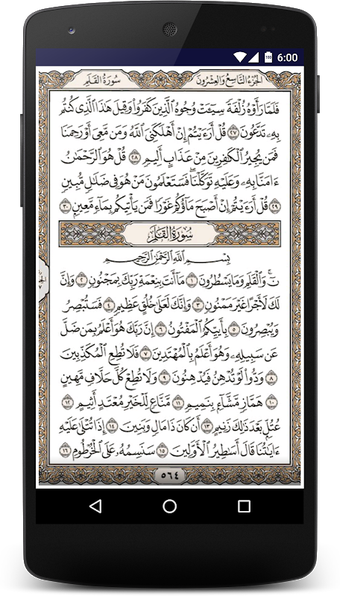 6:00
الجزء التاسع والعشرون
سورة القلم
فَلَمَّا رَأَوْهُ زُلْفَةً سِيٓـَٔتْ وُجُوهُ ٱلَّذِينَ كَفَرُوا۟ وَقِيلَ هَـٰذَا ٱلَّذِى كُنتُم
بِهِۦ تَدَّعُونَ ٢٧ قُلْ أَرَءَيْتُمْ إِنْ أَهْلَكَنِىَ ٱللَّهُ وَمَن مَّعِىَ أَوْ رَحِمَنَا
فَمَن يُجِيرُ ٱلْكَـٰفِرِينَ مِنْ عَذَابٍ أَلِيمٍ ٢٨ قُلْ هُوَ ٱلرَّحْمَـٰنُ
ءَامَنَّا بِهِۦ وَعَلَيْهِ تَوَكَّلْنَا فَسَتَعْلَمُونَ مَنْ هُوَ فِى ضَلَـٰلٍ مُّبِينٍ
٢٩ قُلْ أَرَءَيْتُمْ إِنْ أَصْبَحَ مَآؤُكُمْ غَوْرًا فَمَن يَأْتِيكُم بِمَآءٍ مَّعِينٍۭ ٣٠
سورة القلم
بِسْمِ ٱللَّهِ ٱلرَّحْمَـٰنِ ٱلرَّحِيمِ
نٓ وَٱلْقَلَمِ وَمَا يَسْطُرُونَ ١ مَآ أَنتَ بِنِعْمَةِ رَبِّكَ بِمَجْنُونٍ ٢ وَإِنَّ
لَكَ لَأَجْرًا غَيْرَ مَمْنُونٍ ٣ وَإِنَّكَ لَعَلَىٰ خُلُقٍ عَظِيمٍ ٤ فَسَتُبْصِرُ
وَيُبْصِرُونَ ٥ بِأَييِّكُمُ ٱلْمَفْتُونُ ٦ إِنَّ رَبَّكَ هُوَ أَعْلَمُ بِمَن ضَلَّ
عَن سَبِيلِهِۦ وَهُوَ أَعْلَمُ بِٱلْمُهْتَدِينَ ٧ فَلَا تُطِعِ ٱلْمُكَذِّبِينَ
٨ وَدُّوا۟ لَوْ تُدْهِنُ فَيُدْهِنُونَ ٩ وَلَا تُطِعْ كُلَّ حَلَّافٍ مَّهِينٍ
١٠ هَمَّازٍ مَّشَّآءٍۭ بِنَمِيمٍ ١١ مَّنَّاعٍ لِّلْخَيْرِ مُعْتَدٍ أَثِيمٍ ١٢
عُتُلٍّۭ بَعْدَ ذَٰلِكَ زَنِيمٍ ١٣ أَن كَانَ ذَا مَالٍ وَبَنِينَ ١٤ إِذَا تُتْلَىٰ عَلَيْهِ
ءَايَـٰتُنَا قَالَ أَسَـٰطِيرُ ٱلْأَوَّلِينَ ١٥ سَنَسِمُهُۥ عَلَى ٱلْخُرْطُومِ ١٦
٥٦٤